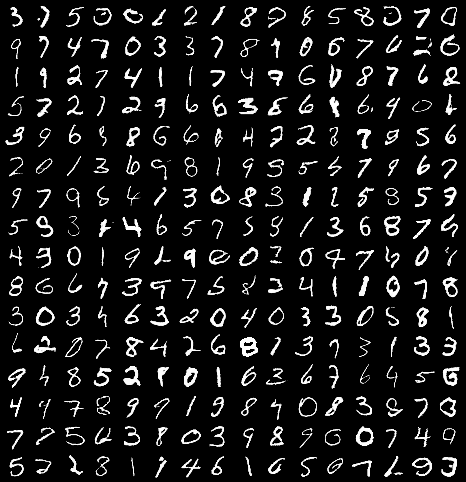 3 7 5 0 0 1 2 1 8 9 8 5 8 0 7 0
9 7 4 7 0 3 3 7 8 9 0 6 7 6 2 6
1 9 2 7 4 1 1 7 4 9 6 1 8 7 6 8
5 7 2 1 2 9 6 6 3 8 6 1 6 9 0 1
3 9 6 5 8 6 6 1 4 2 2 8 7 9 5 6
2 0 1 3 6 9 8 1 9 5 5 5 7 9 6 7
9 7 9 5 4 1 3 0 8 3 1 1 5 8 5 7
5 9 3 1 4 6 5 7 5 8 1 3 6 8 7 5
4 3 0 1 9 2 9 0 0 1 0 9 7 5 0 8
8 6 6 7 3 9 7 5 8 2 4 1 1 0 7 8
3 0 3 4 6 3 2 0 4 0 3 3 0 5 8 1
6 2 0 7 8 4 2 6 8 1 3 7 3 1 3 3
9 4 8 5 2 8 0 1 6 3 6 7 6 4 5 6
4 4 7 8 9 9 1 9 8 4 0 8 3 8 7 0
7 8 5 0 3 8 0 3 9 8 9 6 0 7 4 9
5 2 2 8 1 9 4 6 1 6 5 0 7 2 9 3